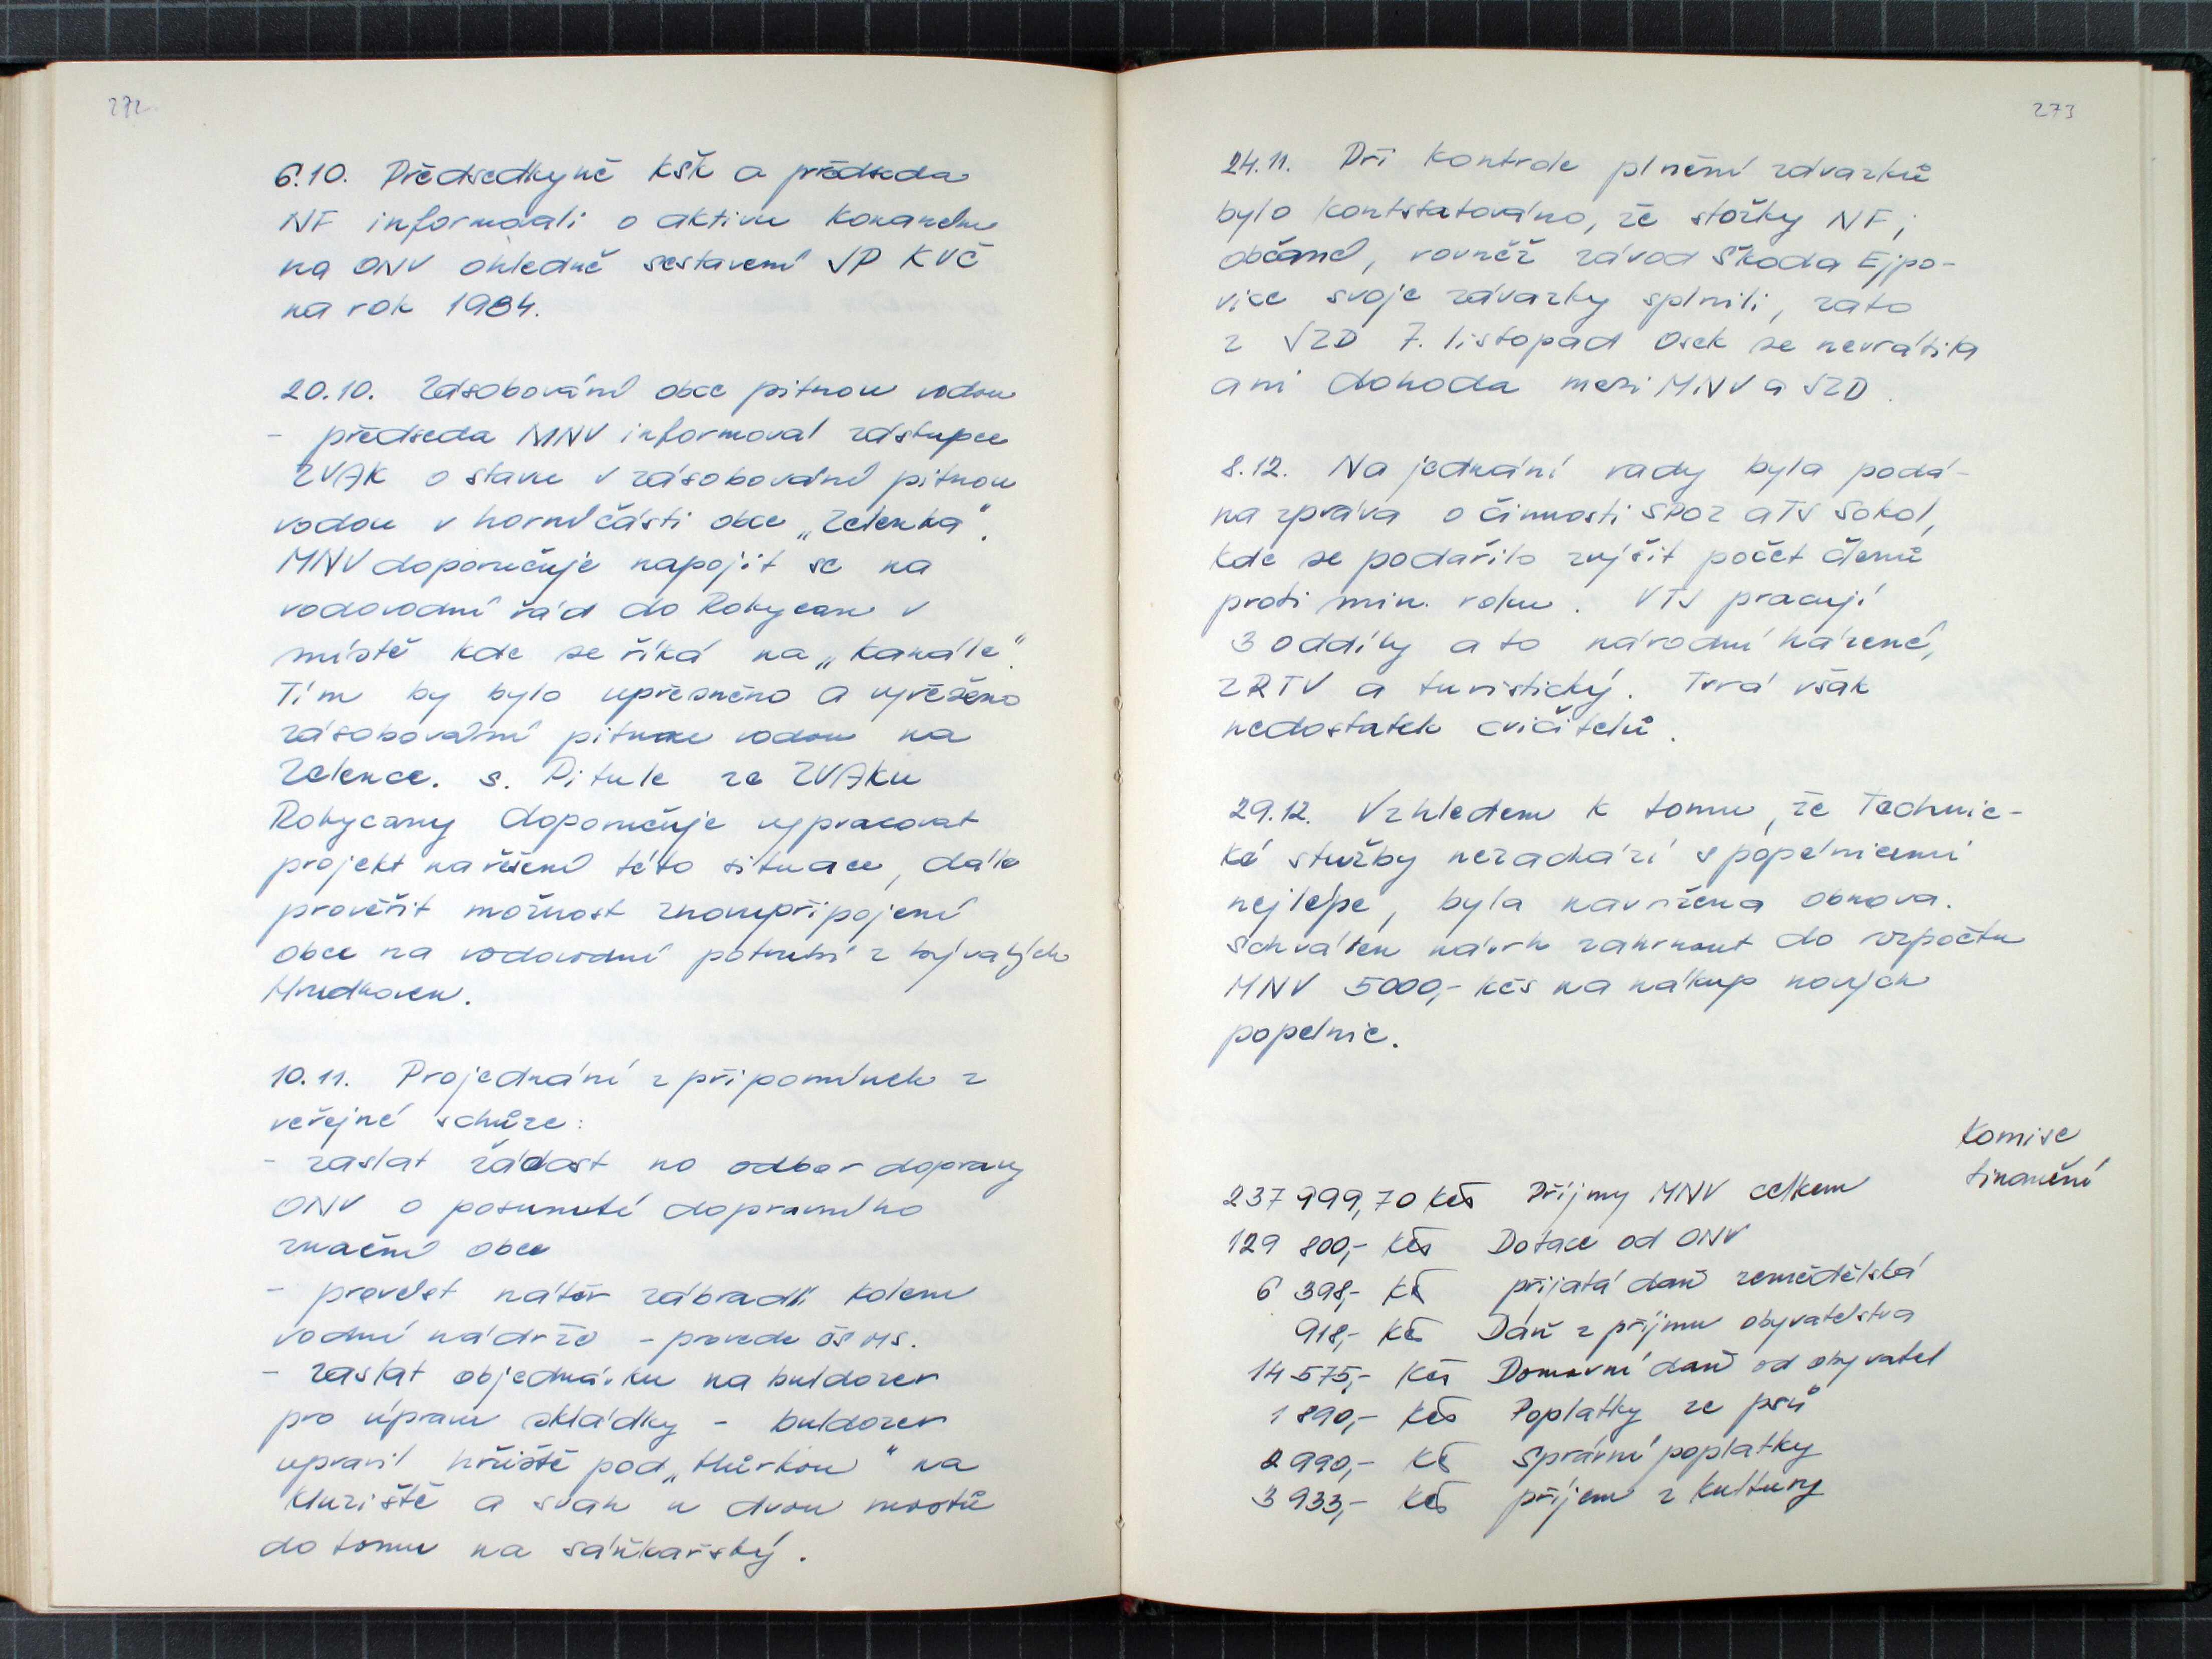 272
6.10. Předsedkyně KŠK a předseda
NF informovali o aktivu konaném
na ONV ohledně sestavení JP KVČ
na rok 1984.
20.10. Zásobování obce pitnou vodou
- předseda MNV informoval zástupce
ZVAK o stavu v zásobování pitnou
vodou v horní části obce „Zelenka".
MNV doporučuje napojit se na
vodovodní řád do Rokycan v
místě kde se říká na „Kanále".
Tím by bylo upřesněno a vyřešeno
zásobování pitnou vodou na
Zelence. s. Pitule ze ZVAKu
Rokycany doporučuje vypracovat
projekt na řešení této situace, dále
prověřit možnost znovupřipojení
obce na vodovodní potrubí z bývalých
Hrudkoven.
10.11. Projednání z připomínek z
veřejné schůze:
- zaslat žádost na odbor dopravy
ONV o posunutí dopravního
značení obce
- provést nátěr zábradlí kolem
vodní nádrže - provede ČSMS.
- zaslat objednávku na buldozer
pro úpravu skládky - buldozer
upravil hřiště pod „Hůrkou" na
kluziště a svah u dvou mostů
do tomu na sáňkařský.
273
24.11. Při kontrole plnění závazků
bylo kontstatováno, že složky NF,
občané, rovněž závod Škoda Ejpo-
vice svoje závazky splnili, zato
z JZD 7. listopad Osek se nevrátila
ani dohoda mezi MNV a JZD.
8.12. Na jednání rady byla podá-
na zpráva o činnosti SPOZ a TJ Sokol,
kde se podařilo zvýšit počet členů
proti min. roku. V TJ pracují
3 oddíly a to národní házené,
ZRTV a turistický. Trvá však
nedostatek cvičitelů.
29.12. Vzhledem k tomu, že Technic-
ké služby nezachází s popelnicemi
nejlépe, byla navržena obnova.
Schválen návrh zahrnout do rozpočtu
MNV 5000,- Kčs na nákup nových
popelnic.
Komise
finanční
237 999,70 Kčs Příjmy MNV celkem
129 800,- Kčs Dotace od ONV
6 398,- Kčs přijatá daň zemědělská
918,- Kčs Daň z příjmu obyvatelstva
14 575,- Kčs Domovní daň od obyvatel
1 890,- Kčs Poplatky ze psů
2 990,- Kčs Správní poplatky
3 933,- Kčs příjem z kultury